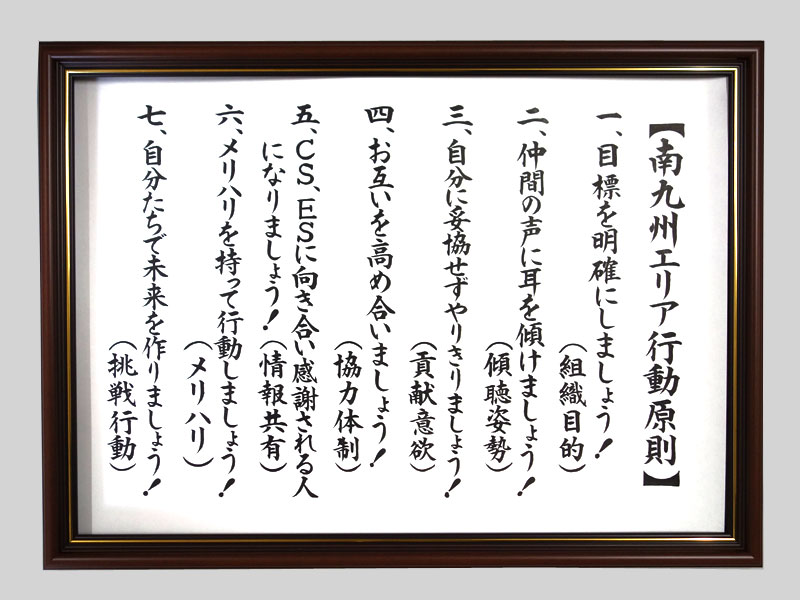 【南九州エリア行動原則】
一、目標を明確にしましょう!
(組織目的)
二、仲間の声に耳を傾けましょう!
(傾聴姿勢)
三、自分に妥協せずやりきりましょう!
(貢献意欲)
四、お互いを高め合いましょう!
(協力体制)
五、CS、ESに向き合い感謝される人
になりましょう!(情報共有)
六、メリハリを持って行動しましょう!
(メリハリ)
七、自分たちで未来を作りましょう!
(挑戦行動)